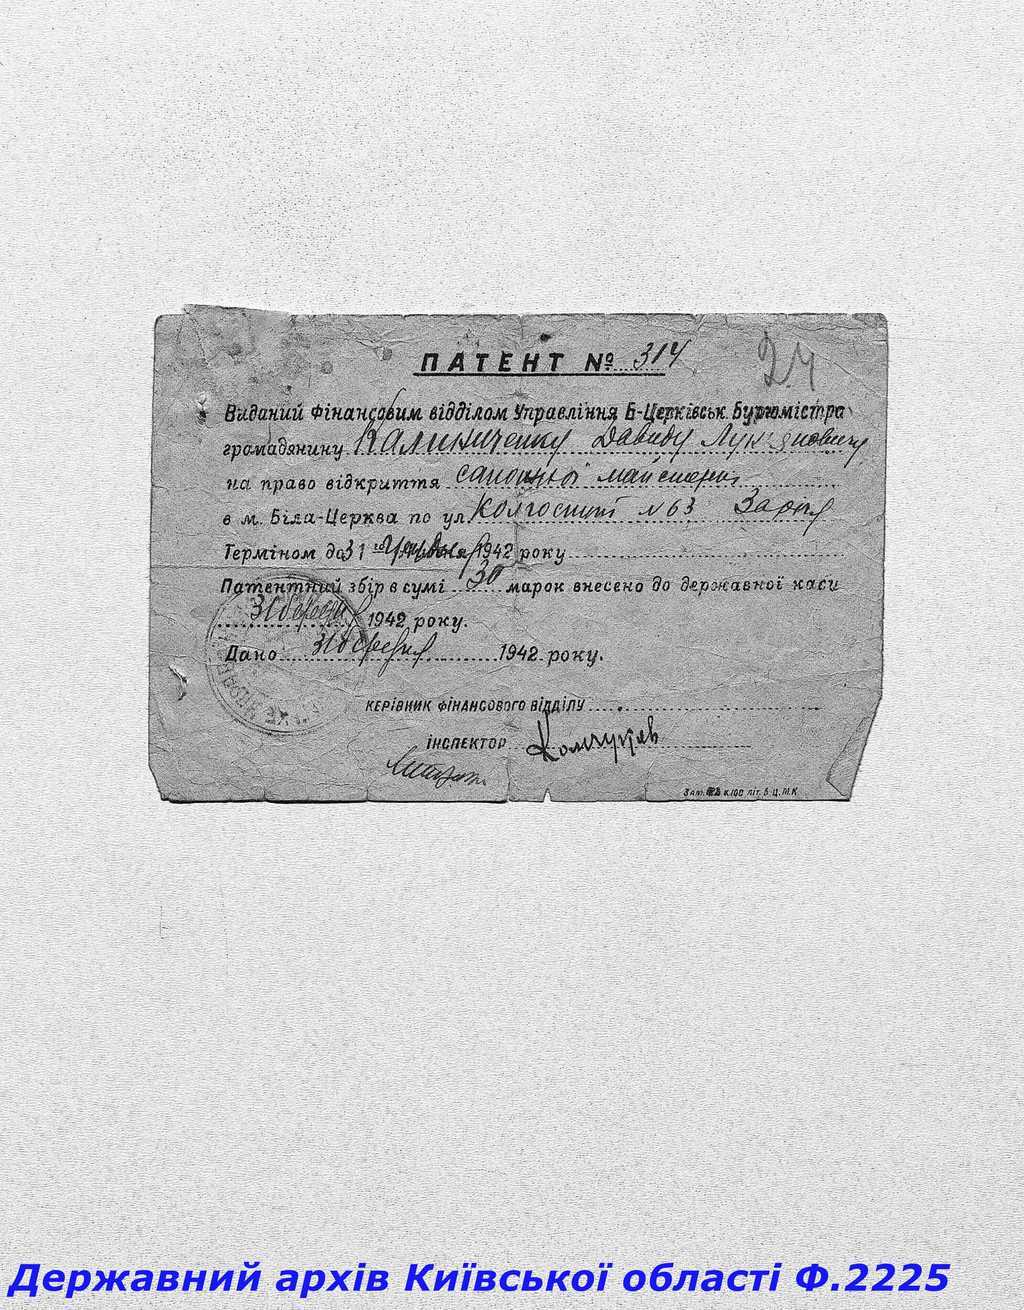 ПАТЕНТ № 314
24
Виданий Фінансовим відділом Управління Б-Церківськ. Бургомістра
громадянину Калиниченку Давиду Лук'яновичу
на право відкриття сапожної майстерні
в м. Біла-Церква по ул. № 63
Терміном до 31 го 1942 року
Патентний збір в сумі 30 марок внесено до державної каси
31 березня 1942 року.
Дано 31 березня 1942 року.
КЕРІВНИК ФІНАНСОВОГО ВІДДІЛУ
ІНСПЕКТОР
Державний архів Київської області Ф.2225